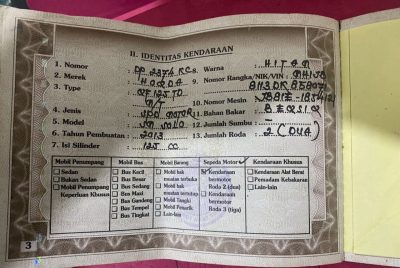 II. IDENTITAS KENDARAAN
1. Nomor : DD 2374 KC
2. Merek : HONDA
3. Type :
M/T
4. Jenis : SPD MOTOR
5. Model : SPD SOLO
6. Tahun Pembuatan : 2013
7. Isi Silinder : 125 CC
8. Warna : HITAM
9. Nomor Rangka/NIK/VIN :
10. Nomor Mesin :
11. Bahan Bakar : BENSIN
12. Jumlah Sumbu : –
13. Jumlah Roda : 2 (DUA)
Mobil Penumpang
Sedan
Bukan Sedan
Mobil Penumpang
Keperluan Khusus
Mobil Bus
Bus Kecil
Bus Besar
Bus Sedang
Bus Maxi
Bus Gandeng
Bus Tempel
Bus Tingkat
Mobil Barang
Mobil bak
muatan terbuka
Mobil bak
muatan tertutup
Mobil Tangki
Mobil Penarik
Lain-lain
Sepeda Motor
Kendaraan
bermotor
Roda 2 (dua)
Kendaraan
bermotor
Roda 3 (tiga)
Kendaraan Khusus
Kendaraan Alat Berat
Pemadam Kebakaran
Lain-lain
3